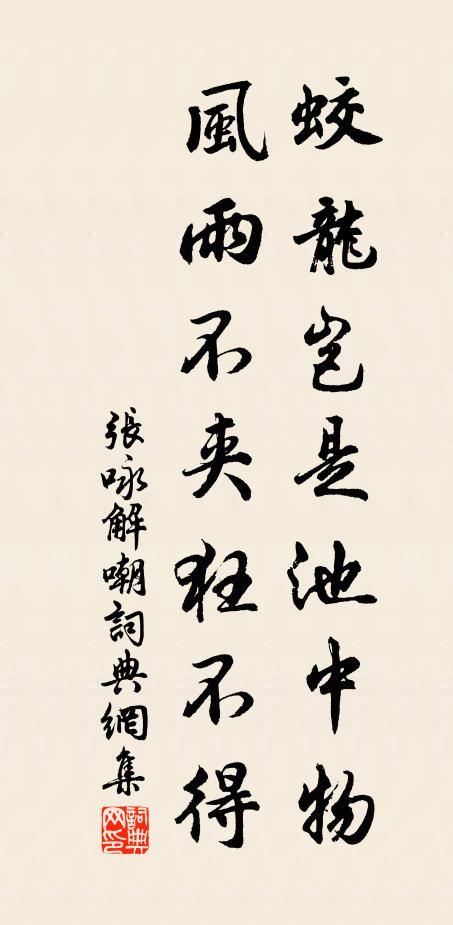 蛟龍岂是池中物
風雨不夾狂不得
張咏解嘲詞典網集
詞典网印